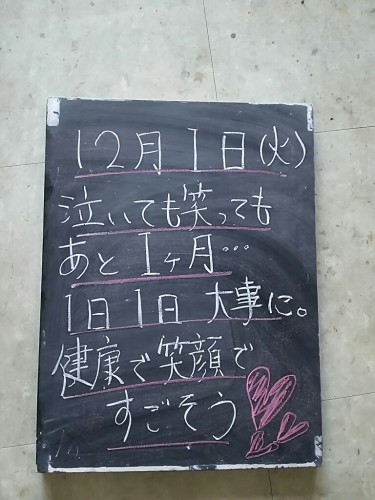 12月1日(火)
泣いても笑っても
あと1ヶ月…
1日1日 大事に。
健康で笑顔で
すごそう